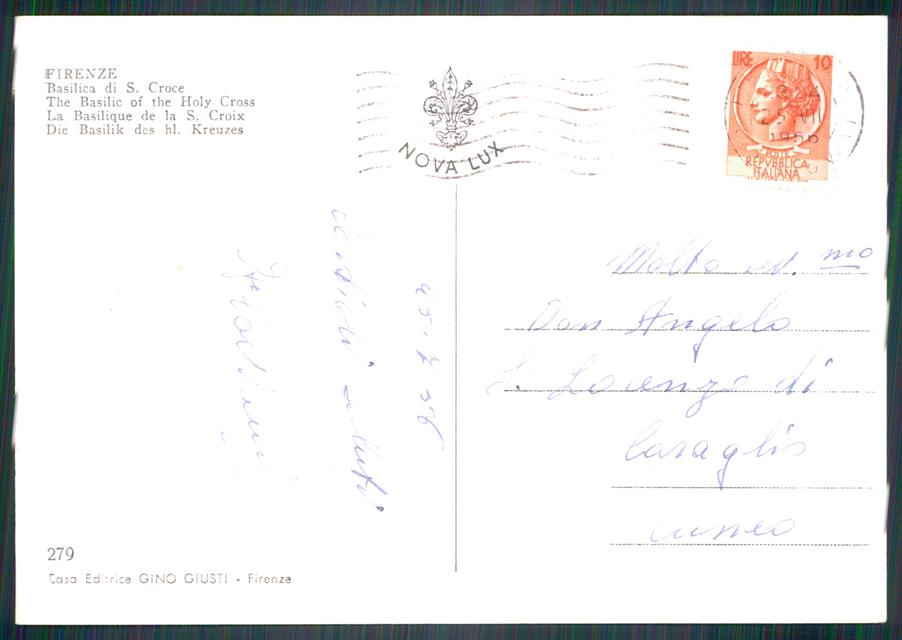 FIRENZE
Basilica di S. Croce
The Basilic of the Holy Cross
La Basilique de la S. Croix
Die Basilik des hl. Kreuzes
NOVA LUX
LIRE 10
25 VII
1956
POSTE
REPVBBLICA
ITALIANA
25.7.56
cordiali saluti
Molto rev. mo
Don Angelo
S. Lorenzo di
Caraglio
Cuneo
279
Casa Editrice GINO GIUSTI - Firenze